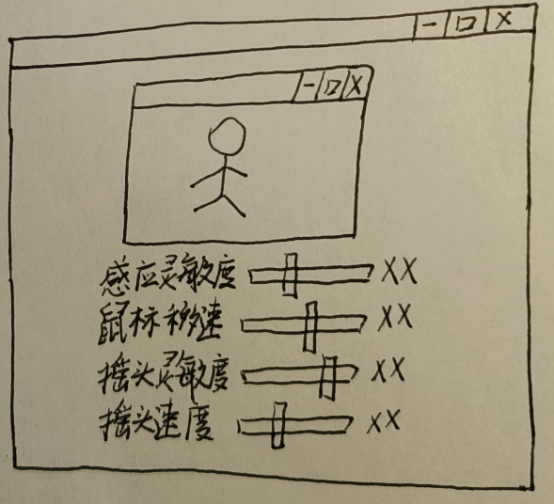 - 口 X
- 口 X
感应灵敏度 XX
鼠标移速 XX
摇头灵敏度 XX
摇头速度 XX